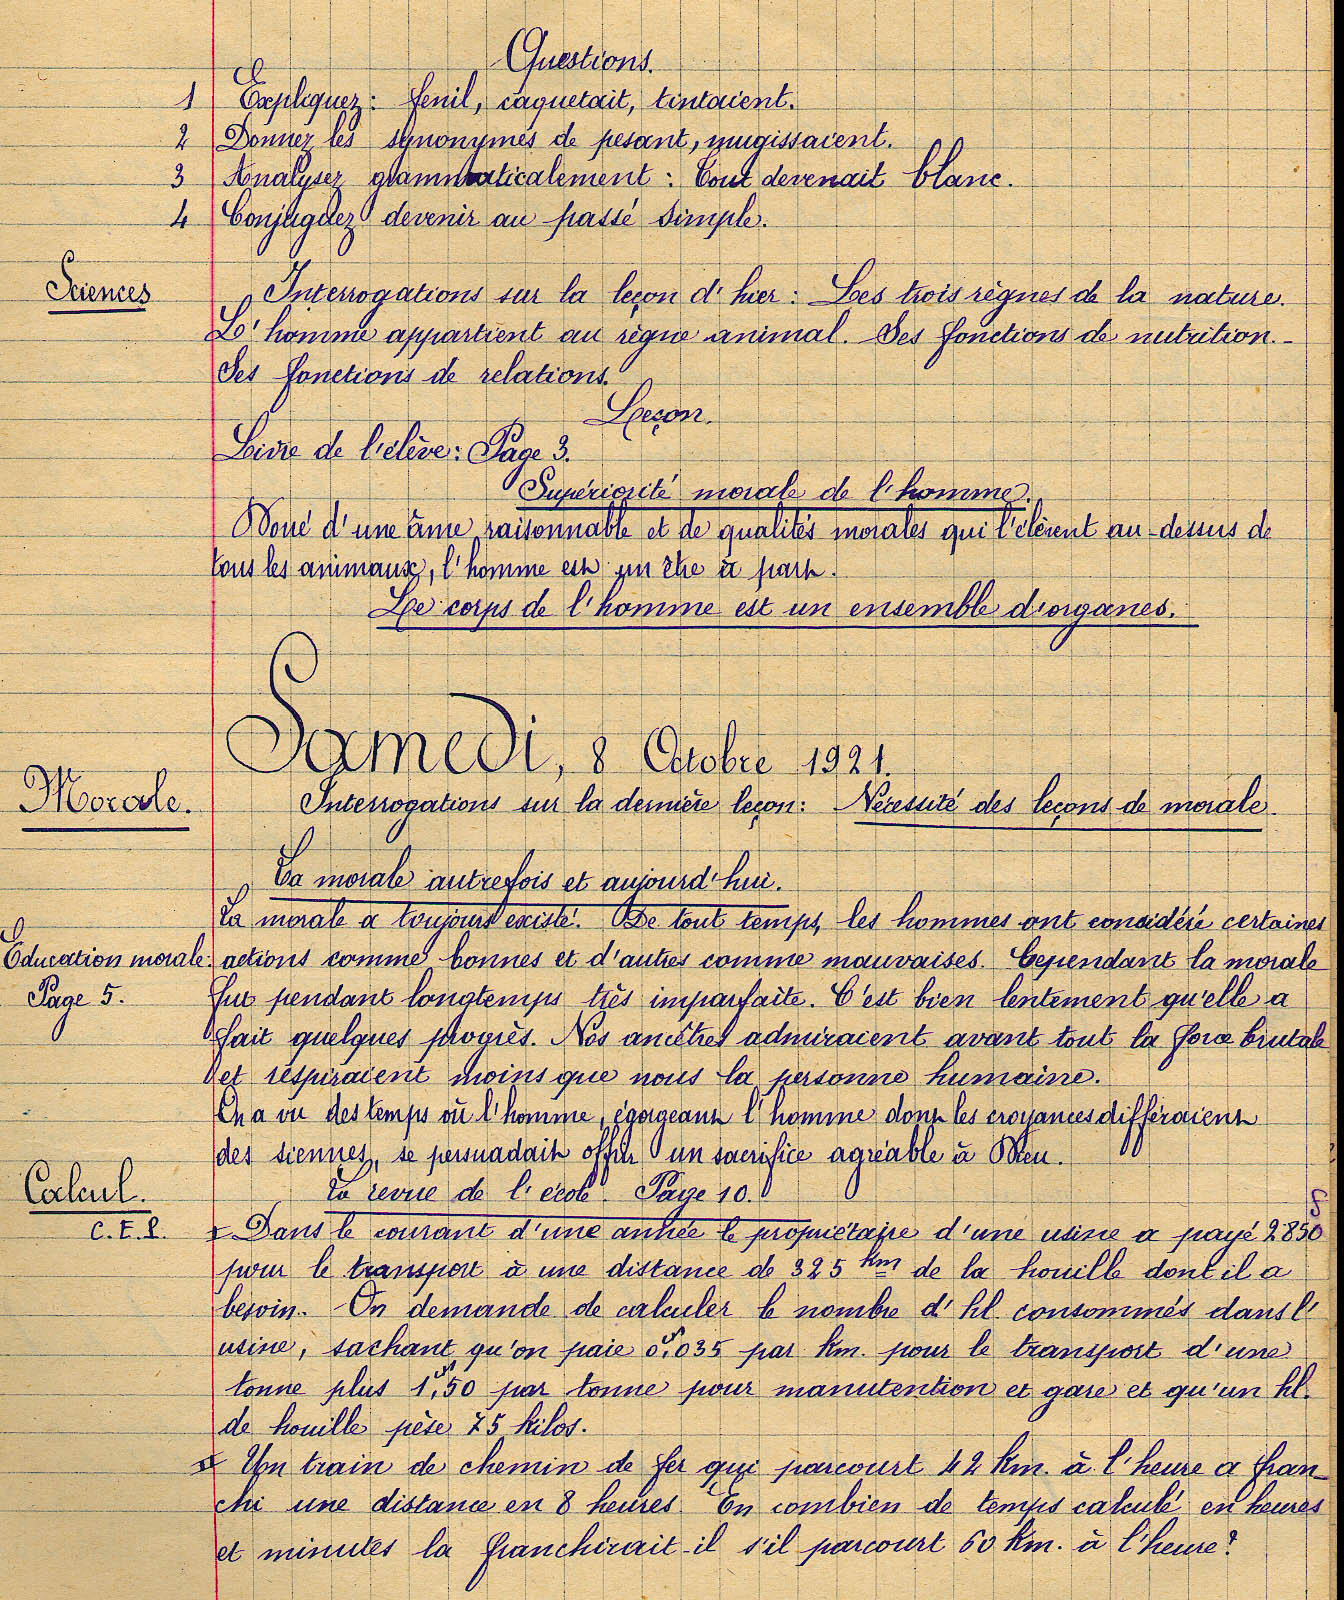 Questions.
1 Expliquez : fenil, caquetait, tintaient.
2 Donnez les synonymes de pesant, mugissaient.
3 Analysez grammaticalement : Tout devenait blanc.
4 Conjuguez devenir au passé simple.
Sciences
Interrogations sur la leçon d'hier : Les trois règnes de la nature.
L'homme appartient au règne animal. Ses fonctions de nutrition.-
Ses fonctions de relations.
Leçon.
Livre de l'élève : Page 3.
Supériorité morale de l'homme.
Doué d'une âme raisonnable et de qualités morales qui l'élèvent au-dessus de
tous les animaux, l'homme est un être à part.
Le corps de l'homme est un ensemble d'organes.
Samedi, 8 Octobre 1921.
Morale.
Interrogations sur la dernière leçon : Nécessité des leçons de morale.
La morale autrefois et aujourd'hui.
La morale a toujours existé. De tout temps, les hommes ont considéré certaines
Education morale. actions comme bonnes et d'autres comme mauvaises. Cependant la morale
Page 5. fut pendant longtemps très imparfaite. C'est bien lentement qu'elle a
fait quelques progrès. Nos ancêtres admiraient avant tout la force brutale
et respiraient moins que nous la personne humaine.
On a vu des temps où l'homme, égorgeant l'homme dont les croyances différaient
des siennes, se persuadait offrir un sacrifice agréable à Dieu.
Calcul.
La revue de l'école. Page 10.
C.E.P. I Dans le courant d'une année le propriétaire d'une usine a payé 2850f
pour le transport à une distance de 325 km de la houille dont il a
besoin. On demande de calculer le nombre d'hl. consommés dans l'
usine, sachant qu'on paie 0f,035 par km. pour le transport d'une
tonne plus 1f,50 par tonne pour manutention et gare et qu'un hl.
de houille pèse 75 kilos.
II Un train de chemin de fer qui parcourt 42 km. à l'heure a fran-
chi une distance en 8 heures. En combien de temps calculé en heures
et minutes la franchirait-il s'il parcourt 60 km. à l'heure ?